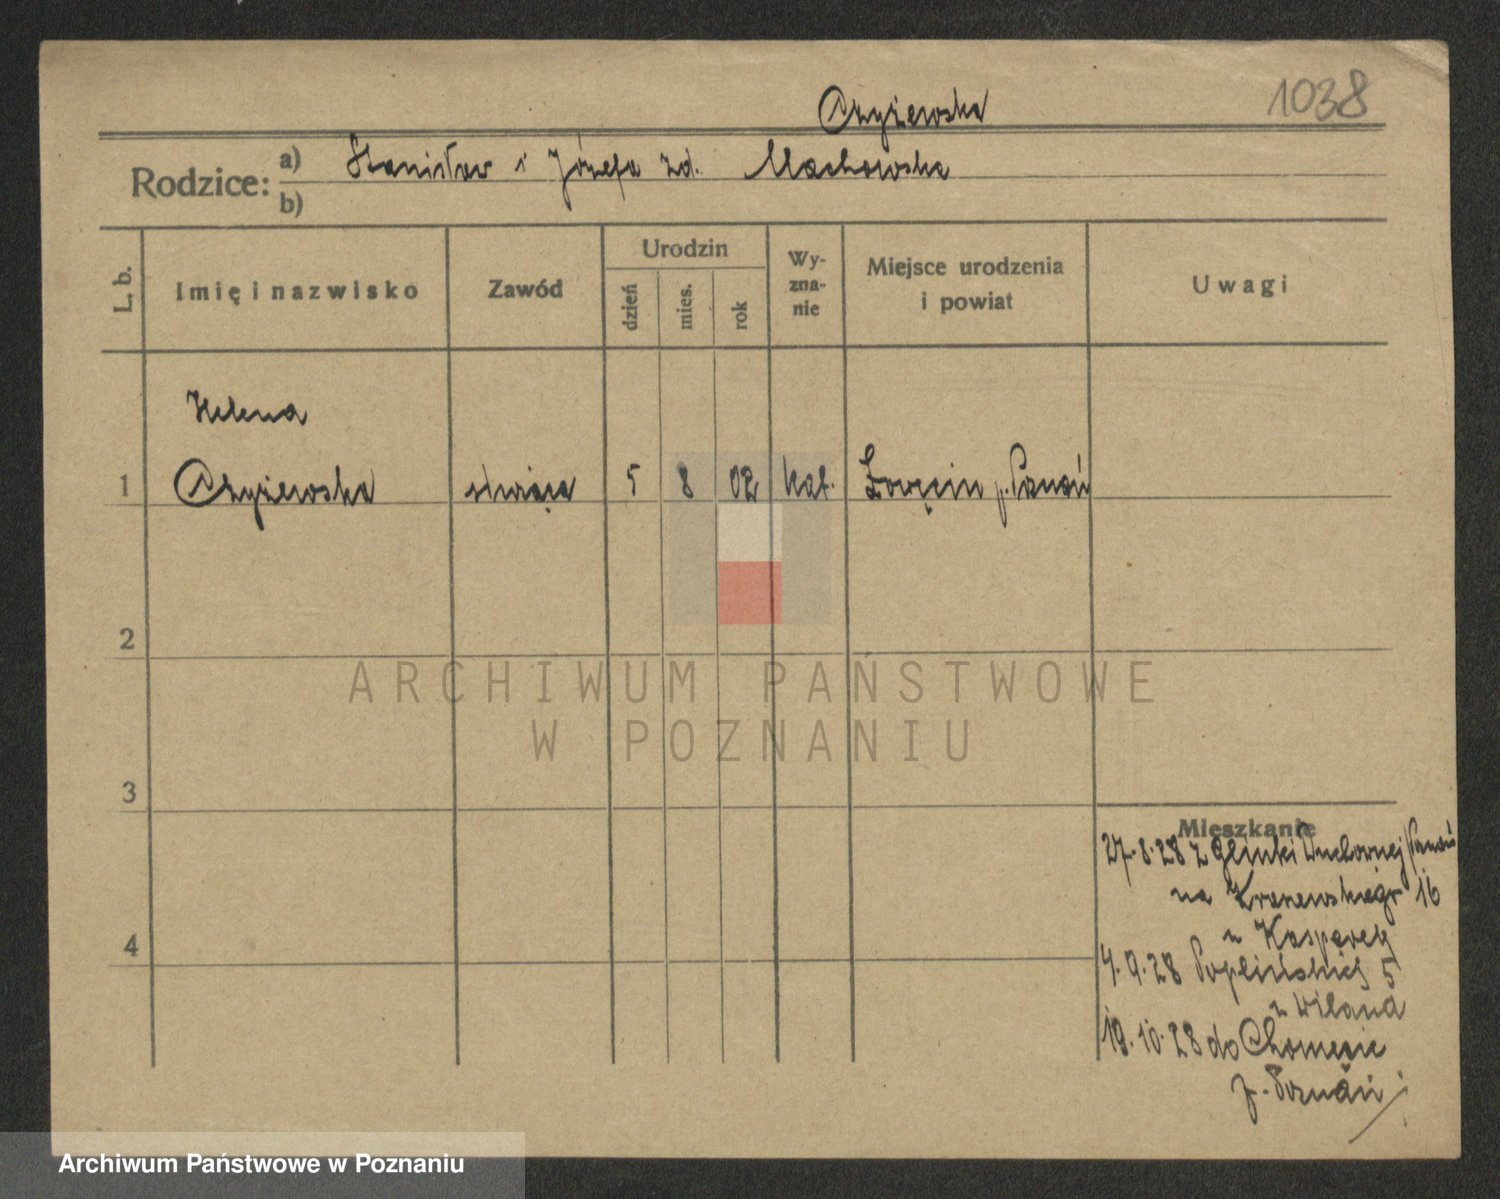 1038
Czyżewska
Rodzice: a) Stanisław i Józefa zd. Machowska
b)
L. b. Imię i nazwisko Zawód Urodzin dzień mies. rok Wyznanie Miejsce urodzenia i powiat Uwagi
Helena
1 Czyżewska służąca 5 8 02 kat. Łowęcin p. Poznań
2
ARCHIWUM PAŃSTWOWE
W POZNANIU
3
Mieszkanie
27.8.28 z Glinki Duchownej Poznań
na 16
u Kasparek
4
4.9.28 Poplińskich 5
u Wiland
19.10.28 do Chomęcic
p. Poznań
Archiwum Państwowe w Poznaniu